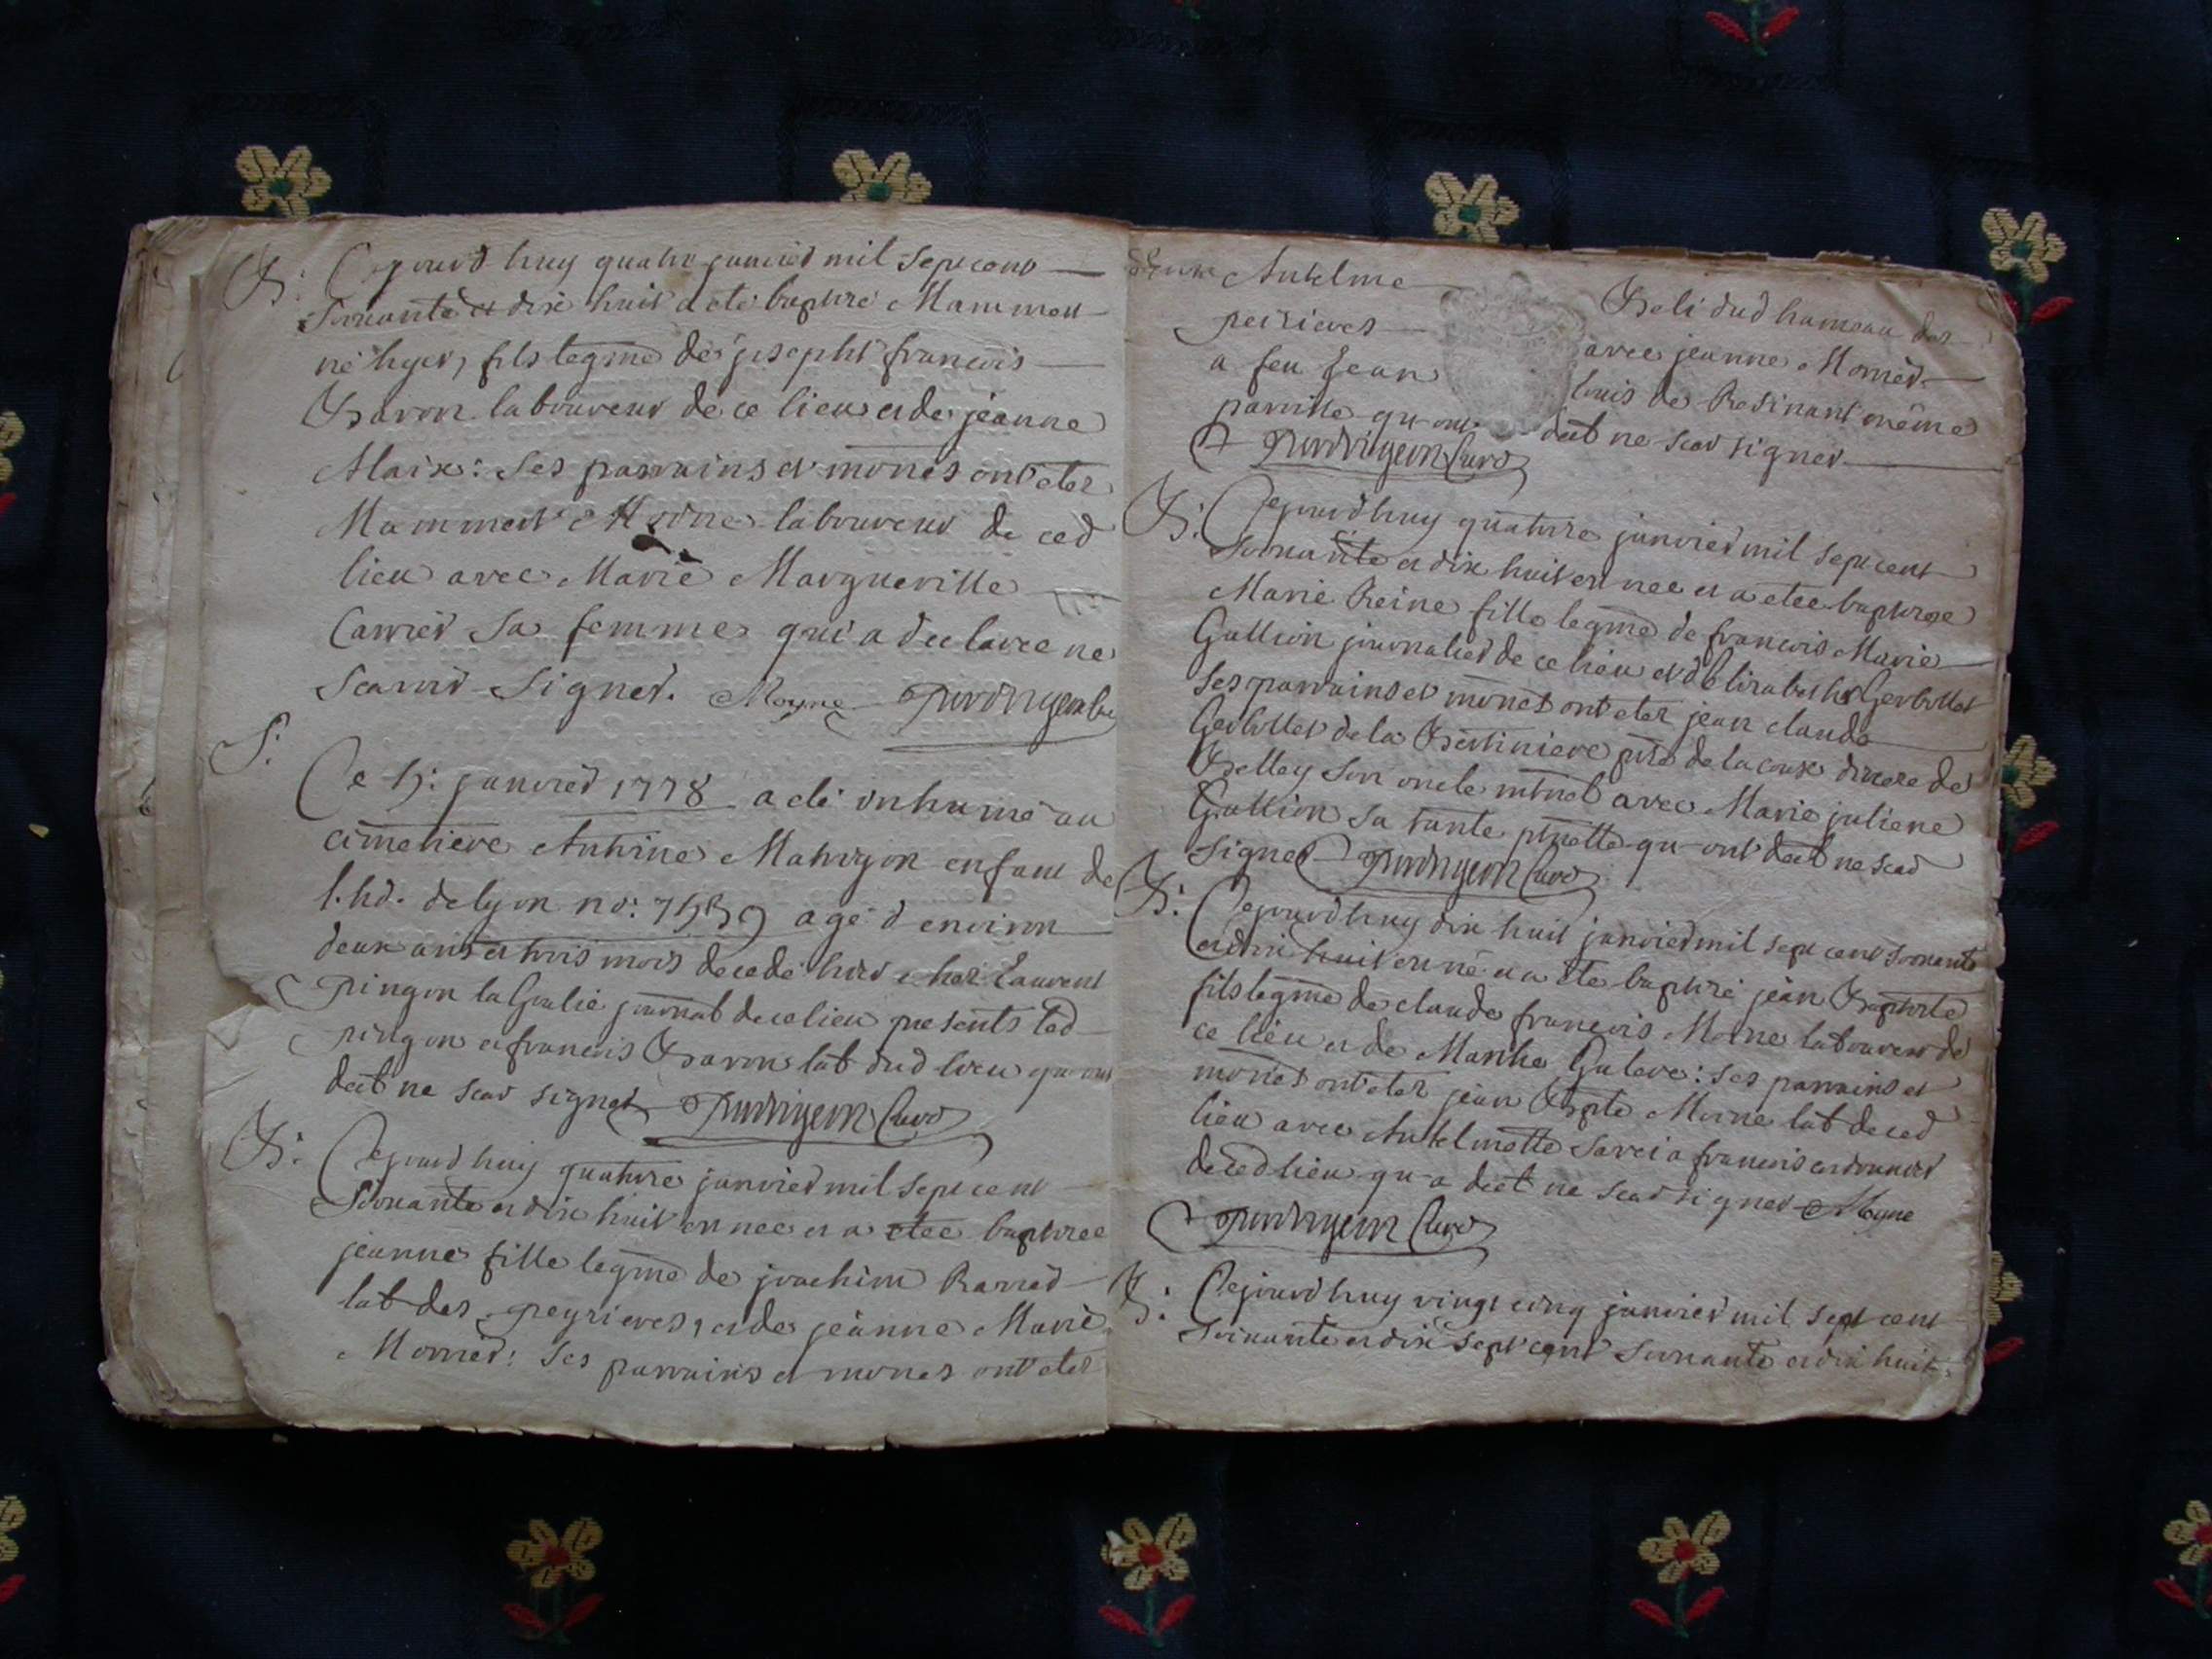 B: Cejourd huy quatre janvier mil sept cent
soixante et dix huit a eté baptizé Mammert
né hyer, fils legme de joseph françois
Baron laboureur de ce lieu et de jeanne
Alaix: Ses parrains et mones ont eter
Mammert Moine laboureur de ced
lieu avec Marie Margueritte
Carrier Sa femme qui a declaree ne
Scavoir Signer. Moyne
S:
Ce janvier 1778 a eté inhumé au
cimetiere Antoine enfant de
l. hd. de lyon no: agé d environ
deux ans et trois mois decedé hier chez Laurent
pingon la Goulie journal de ce lieu presents led
pingon et francois Baron lab dud lieu qu ont
decl ne scav signer Curé
B: Cejourd huy quatorze janvier mil sept cent
soixante et dix huit en nee et a etee baptizee
jeanne fille legme de joachim
lab des peyrieres, et de jeanne Marie
Ses parrains et mones ont eter
Antelme Beli dud hameau des
peirieres avec jeanne
a feu Jean Louis de même
parroisse qu ont decl ne scav signer
Curé
B: Cejourd huy quatorze janvier mil sept cent
soixante et dix huit en nee et a etee baptizee
Marie Reine fille legme de francois Marie
Gullion journalier de ce lieu et d Elizabeth Gerbollet
Ses parrains et mones ont eter jean claude
Gerbollet de la psse de diocese de
Belley Son oncle mtnel avec Marie juliene
Gullion Sa tante ptnelle qu ont decl ne scav
signer Curé
B: Cejourd huy dix huit janvier mil sept cent soixante
et dix huit en né et a ete baptizé jean Baptiste
fils legme de claude francois Moine laboureur de
ce lieu et de Marthe Ses parrains et
mones ont eter jean Bapte Moine lab de ced
lieu avec Antelmette a francois
de ced lieu qu a decl ne scav signer Moyne
Curé
B: Cejourd huy vingt cinq janvier mil sept cent
soixante et dix sept cent soixante et dix huit